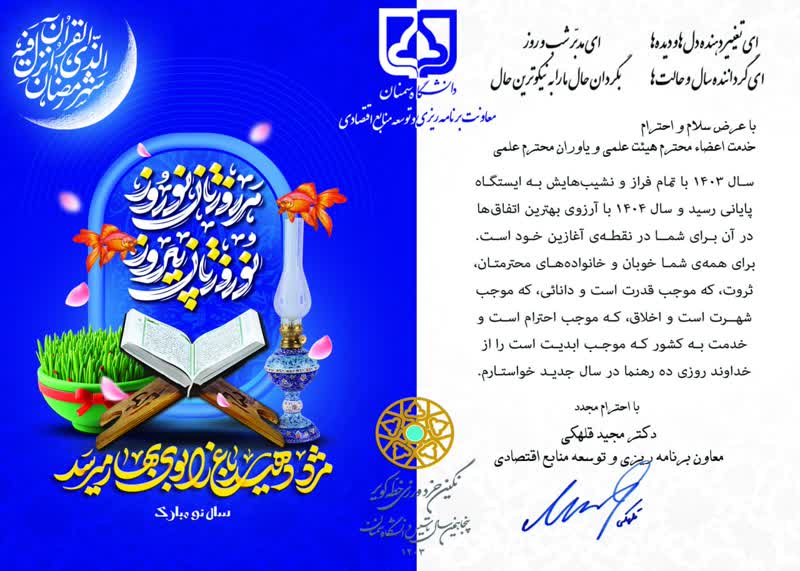 شهر رمضان
الذی انزل فیه
القرآن
هر روزتان نوروز
و
نوروزتان پیروز
مژده دهید باغ را بوی بهار می‌رسد
سال نو مبارک
دانشگاه سمنان
معاونت برنامه ریزی و توسعه منابع اقتصادی
نگین خردورزی خطه کویر
پنجاهمین سال تاسیس دانشگاه سمنان
۱۴۰۳
ای تغییر دهنده دل ها و دیده ها ای مدبّر شب و روز
ای گرداننده سال و حالت ها بگردان حال ما را به نیکوترین حال
با عرض سلام و احترام
خدمت اعضاء محترم هیئت علمی و یاوران محترم علمی
سـال ۱۴۰۳ با تمام فراز و نشیب‌هایش به ایستگاه
پایانی رسید و سال ۱۴۰۴ با آرزوی بهترین اتفاق‌ها
در آن برای شـما در نقطه‌ی آغازین خود است.
برای همه‌ی شـما خوبان و خانواده‌های محترمتان،
ثروت، که موجب قدرت است و دانائی، که موجب
شهـرت است و اخلاق، کـه موجب احترام اسـت و
خدمت به کشور کـه موجب ابدیـت است را از
خداوند روزی ده رهنما در سال جدید خواستارم.
با احترام مجدد
دکتر مجید قلهکی
معاون برنامه ریزی و توسعه منابع اقتصادی
قلهکی